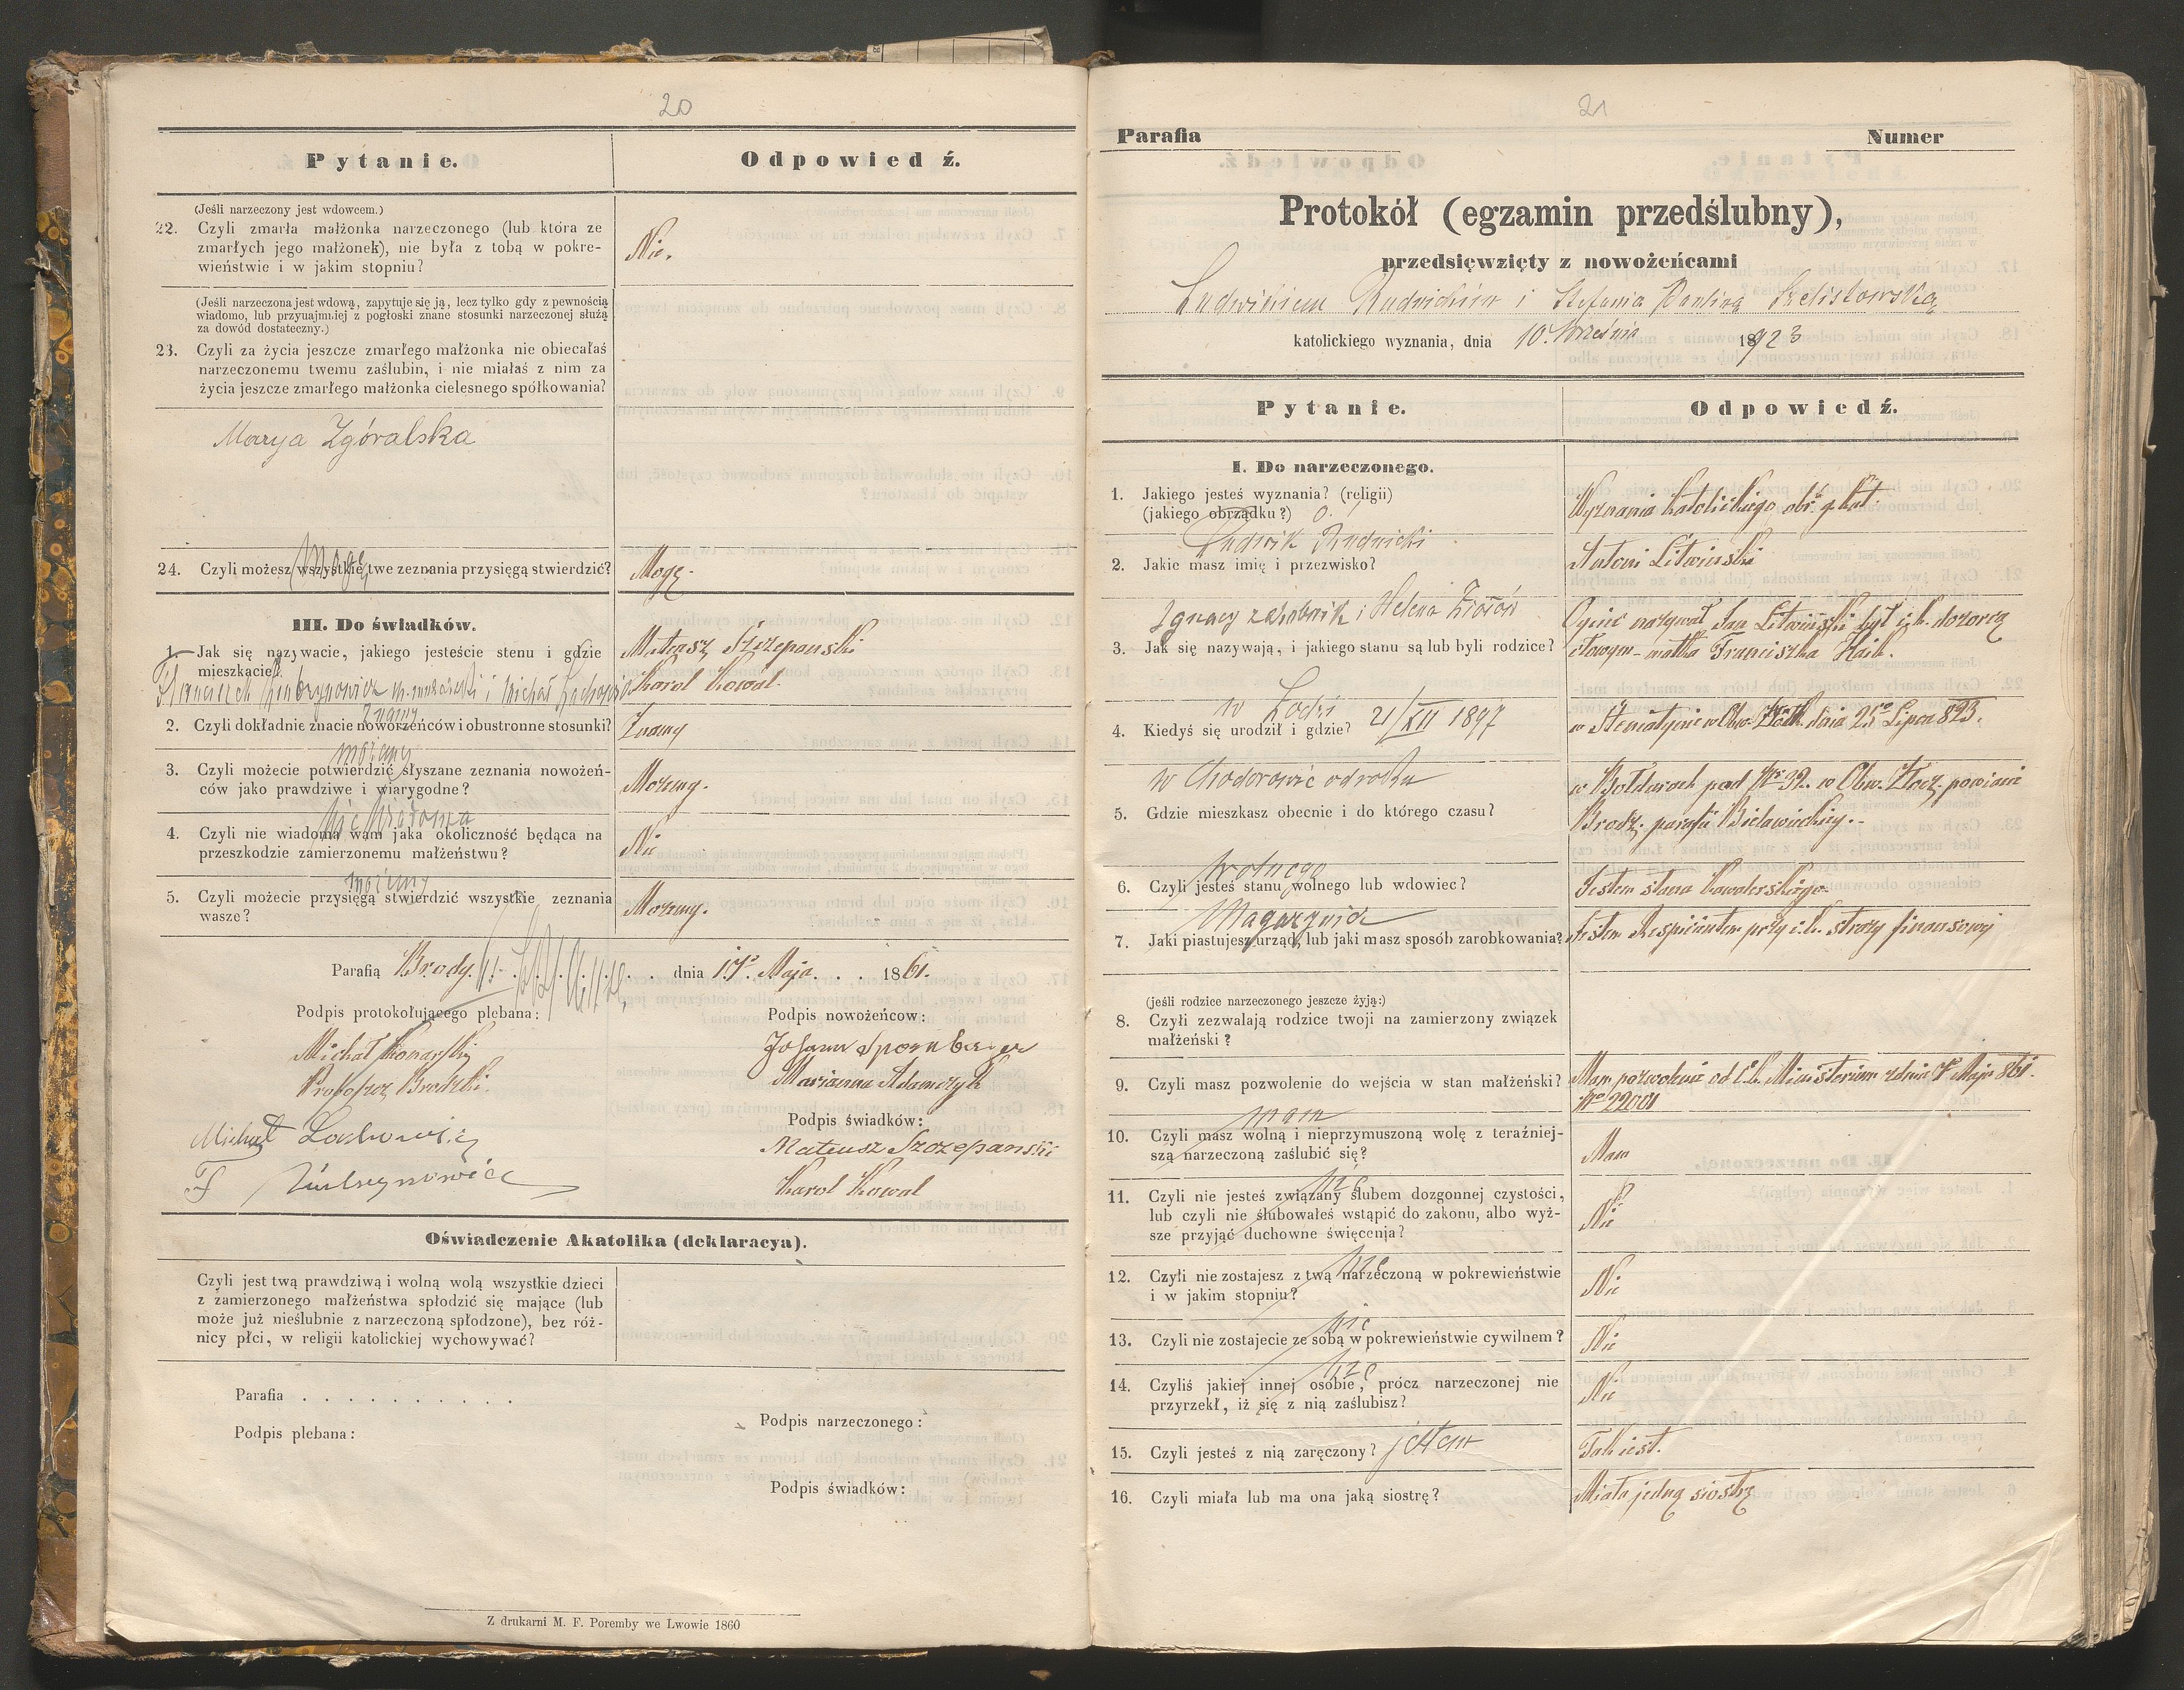 20
Pytanie. Odpowiedź.
(Jeśli narzeczony jest wdowcem.)
22. Czyli zmarła małżonka narzeczonego (lub która ze
zmarłych jego małżonek), nie była z tobą w pokre-
wieństwie i w jakim stopniu?
Nie.
(Jeśli narzeczona jest wdową, zapytuje się ją, lecz tylko gdy z pewnością
wiadomo, lub przynajmniej z pogłoski znane stosunki narzeczonej służą
za dowód dostateczny.)
23. Czyli za życia jeszcze zmarłego małżonka nie obiecałaś
narzeczonemu twemu zaślubin, i nie miałaś z nim za
życia jeszcze zmarłego małżonka cielesnego spółkowania?
Marya Zgóralska
Mogę
24. Czyli możesz wszystkie twe zeznania przysięgą stwierdzić?
Mogę.
III. Do świadków.
1. Jak się nazywacie, jakiego jesteście stenu i gdzie
mieszkacie?
Mateusz Szczepański
Karol Kowal.
Znamy
2. Czyli dokładnie znacie nowożeńców i obustronne stosunki?
Znamy
możemy
3. Czyli możecie potwierdzić słyszane zeznania nowożeń-
ców jako prawdziwe i wiarygodne?
Możemy.
Nie wiadoma
4. Czyli nie wiadoma wam jaka okoliczność będąca na
przeszkodzie zamierzonemu małżeństwu?
Nie
możemy
5. Czyli możecie przysięgą stwierdzić wszystkie zeznania
wasze?
Możemy.
Parafią Brody. dnia 17º Maja. . . 1861.
Podpis protokołującego plebana:
Podpis nowożeńcow:
Michał
Proboszcz Brodzki.
Johann
Marianna Adamczyk
Podpis świadków:
Michał
Mateusz Szczepanski
Karol Kowal
Oświadczenie Akatolika (deklaracya).
Czyli jest twą prawdziwą i wolną wolą wszystkie dzieci
z zamierzonego małżeństwa spłodzić się mające (lub
może już nieślubnie z narzeczoną spłodzone), bez róż-
nicy płci, w religii katolickiej wychowywać?
Parafia . . . . . . . . . .
Podpis plebana:
Podpis narzeczonego:
Podpis świadków:
Z drukarni M. F. Poremby we Lwowie 1860
21
Parafia Numer
Protokół (egzamin przedślubny),
przedsięwzięty z nowożeńcami
Ludwikiem Rudnickim i Stefania Pauliną
katolickiego wyznania, dnia 10. Września 1923
Pytanie. Odpowiedź.
I. Do narzeczonego.
1. Jakiego jesteś wyznania? (religii)
(jakiego obrządku?)
Wyznania katolickiego obr. g. kat.
Ludwik Rudnicki
2. Jakie masz imię i przezwisko?
Antoni Litwiński
Ignacy zarobnik i Helena
3. Jak się nazywają, i jakiego stanu są lub byli rodzice?
Ojciec nazywał Jan Litwiński był c. k. dozorcą
cłowym - matka Franciszka
w Łodzi
4. Kiedyś się urodził i gdzie? 21/XII 1897
dnia 25º Lipca 823.
w Chodorowie od roku
5. Gdzie mieszkasz obecnie i do którego czasu?
w Bołdurach pod Nº 32. w Obw. Złocz. powiecie
Brodz.
wolnego
6. Czyli jesteś stanu wolnego lub wdowiec?
Jestem stanu kawalerskiego
7. Jaki piastujesz urząd, lub jaki masz sposób zarobkowania?
Jestem Respicientem przy c. k. straży finansowej
(jeśli rodzice narzeczonego jeszcze żyją:)
8. Czyli zezwalają rodzice twoji na zamierzony związek
małżeński?
9. Czyli masz pozwolenie do wejścia w stan małżeński?
Mam pozwolenie od C. k. Ministerium z dnia Maja 861.
mam
10. Czyli masz wolną i nieprzymuszoną wolę z teraźniej-
szą narzeczoną zaślubić się?
Mam
nie
11. Czyli nie jesteś związany ślubem dozgonnej czystości,
lub czyli nie ślubowałeś wstąpić do zakonu, albo wyż-
sze przyjąć duchowne święcenia?
Nie
nie
12. Czyłi nie zostajesz z twą narzeczoną w pokrewieństwie
i w jakim stopniu?
Nie
nie
13. Czyli nie zostajecie ze sobą w pokrewieństwie cywilnem?
Nie
nie
14. Czyliś jakiej innej osobie, prócz narzeczonej nie
przyrzekł, iż się z nią zaślubisz?
Nie
15. Czyli jesteś z nią zaręczony? jestem
Tak jest.
16. Czyli miała lub ma ona jaką siostrę?
Miała jedną siostrę